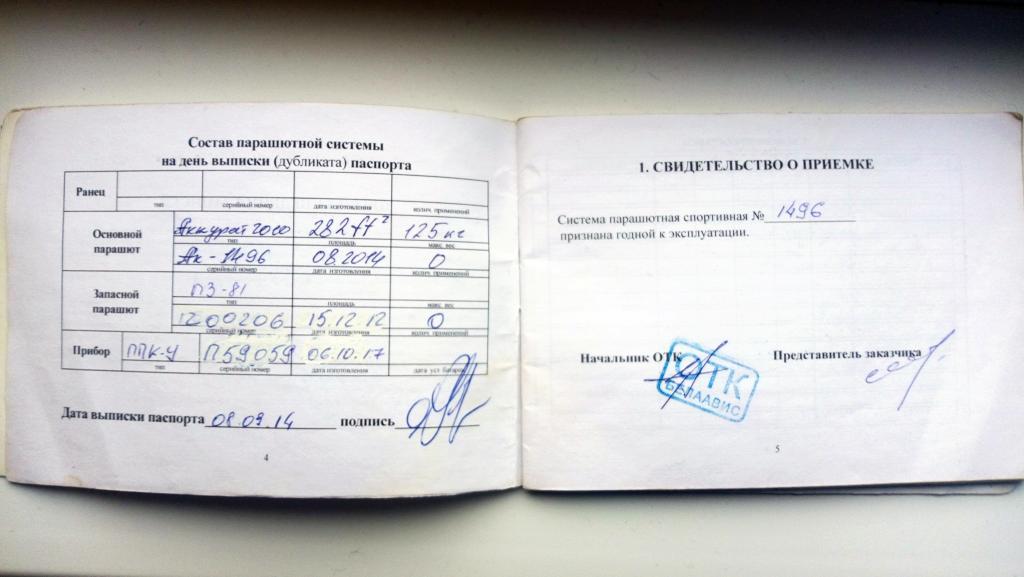 Состав парашютной системы
на день выписки (дубликата) паспорта
Ранец
тип серийный номер дата изготовления колич. применений
Основной парашют
Аккурат 2000 282 ft² 125 кг
тип площадь макс вес
Ак-1496 08.2014 0
серийный номер дата изготовления колич. применений
Запасной парашют
ПЗ-81
тип площадь макс вес
1200206 15.12.12 0
серийный номер дата изготовления колич. применений
Прибор ППК-У П59059 06.10.17
тип серийный номер дата изготовления дата уст батареи
Дата выписки паспорта 08.09.14 подпись
4
1. СВИДЕТЕЛЬСТВО О ПРИЕМКЕ
Система парашютная спортивная № 1496
признана годной к эксплуатации.
Начальник ОТК Представитель заказчика
ОТК
БЕЛААВИС
5